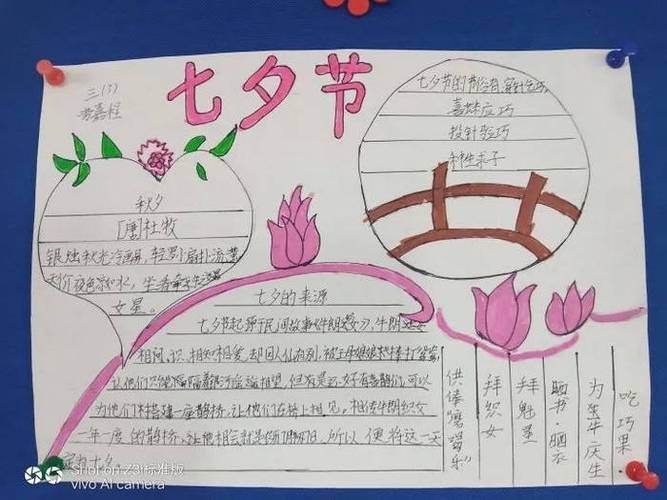 七夕节
三(7)
七夕节的节俗有:穿针乞巧,
喜蛛应巧
投针验巧
种生求子
秋夕
[唐]杜牧
银烛秋光冷画屏,轻罗小扇扑流萤
天街夜色凉如水,坐看牵牛织
女星。
七夕的来源
七夕节起源于民间故事《牛郎织女》,牛郎
相知相爱,却因人仙有别,被王母娘娘
让他们只能隔着银河遥遥相望,但
为他们来搭建一座鹊桥,让他们在桥上相见,
一年一度的鹊桥,让他相会就是7月7日,所以便将这一天
定为七夕
供俸“磨喝乐”
拜织女
拜魁星
晒书·晒衣
为生牛庆生
吃巧果
Shot on Z3i标准版
vivo AI camera